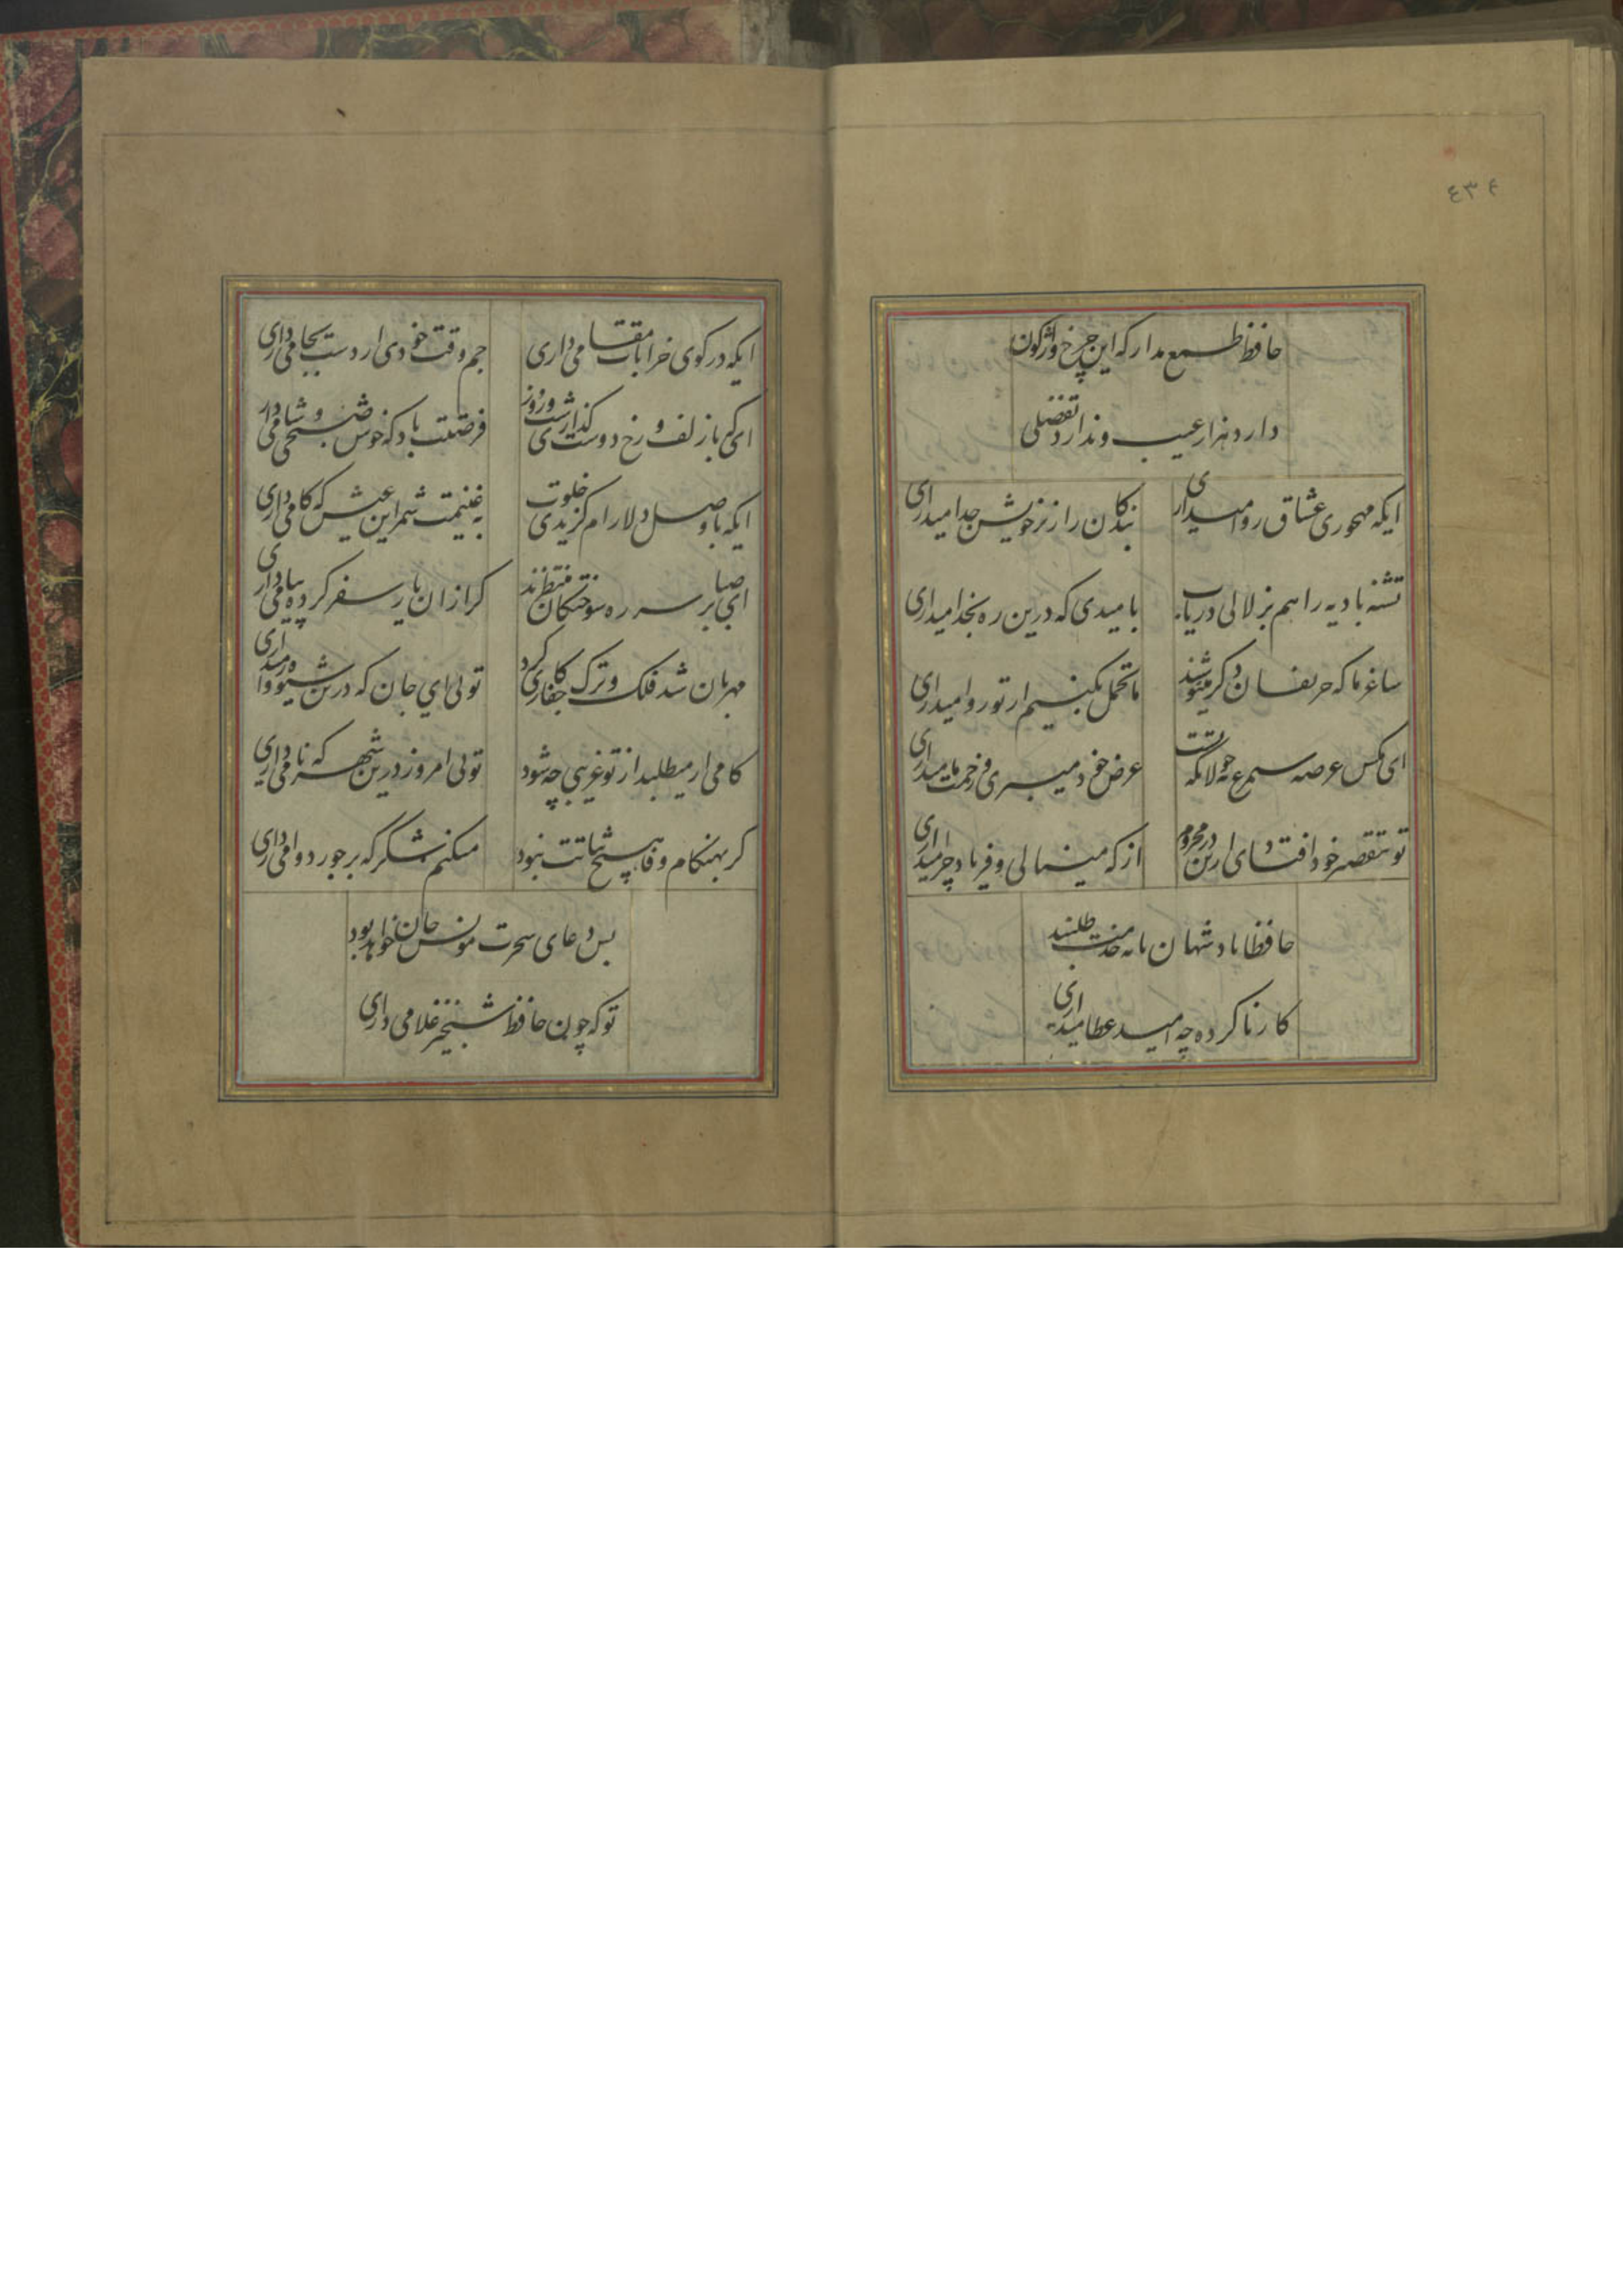 ٤٣٤
حافظ طمع مدار که این چرخ واژگون
دارد هزار عیب و ندارد تفضلی
ایکه مهجوری عشاق روا میداری
بندگان را ز بر خویش جدا میداری
تشنه بادیه را هم بزلالی دریاب
بامیدی که درین ره بخدا میداری
ساغر ما که حریفان دگر مینوشند
ما تحمل نکنیم ار تو روا میداری
ای مگس عرصه سیمرغ نه جولانگه تست
عرض خود میبری و زحمت ما میداری
تو بتقصیر خود افتادی ازین در محروم
از که مینالی و فریاد چرا میداری
حافظا پادشهان پایه بخدمت طلبند
کار ناکرده چه امید عطا میداری
ایکه در کوی خرابات مقامی داری
جم وقت خودی ار دست بجامی داری
ای که با زلف و رخ دوست گذاری شب و روز
فرصتت باد که خوش صبحی و شامی داری
ایکه با وصل دلارام گزیدی خلوت
به غنیمت شمر این عیش که کامی داری
ای صبا بر سر ره سوختگان منتظرند
گر ازان یار سفر کرده پیامی داری
مهربان شد فلک و ترک جفاکاری کرد
توئی ای جان که درین شیوه
کامی ار میطلبد از تو غریبی چه شود
توئی امروز درین شهر که نامی داری
گر بهنگام وفا هیچ ثباتت نبود
میکنم شکر که بر جور دوامی داری
بس دعای سحرت مونس جان خواهد بود
تو که چون حافظ شبخیز غلامی داری